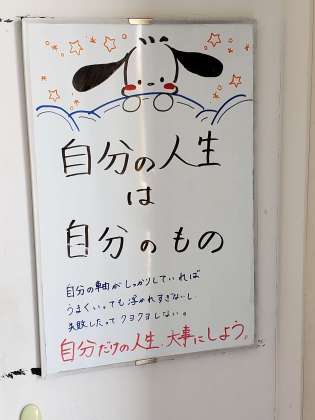 自分の人生
は
自分のもの
自分の軸がしっかりしていれば
うまくいっても浮かれすぎないし
失敗したってクヨクヨしない。
自分だけの人生、大事にしよう。